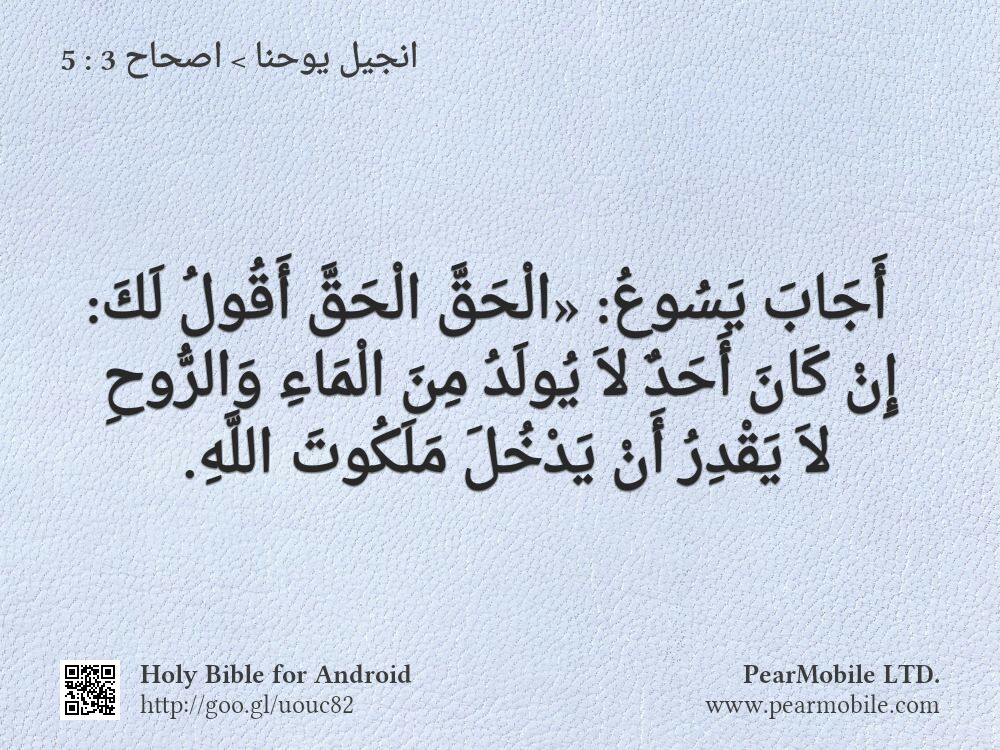 انجيل يوحنا > اصحاح 3 : 5
أَجَابَ يَسُوعُ: «الْحَقَّ الْحَقَّ أَقُولُ لَكَ:
إِنْ كَانَ أَحَدٌ لاَ يُولَدُ مِنَ الْمَاءِ وَالرُّوحِ
لاَ يَقْدِرُ أَنْ يَدْخُلَ مَلَكُوتَ اللَّهِ.
Holy Bible for Android
http://goo.gl/uouc82
PearMobile LTD.
www.pearmobile.com